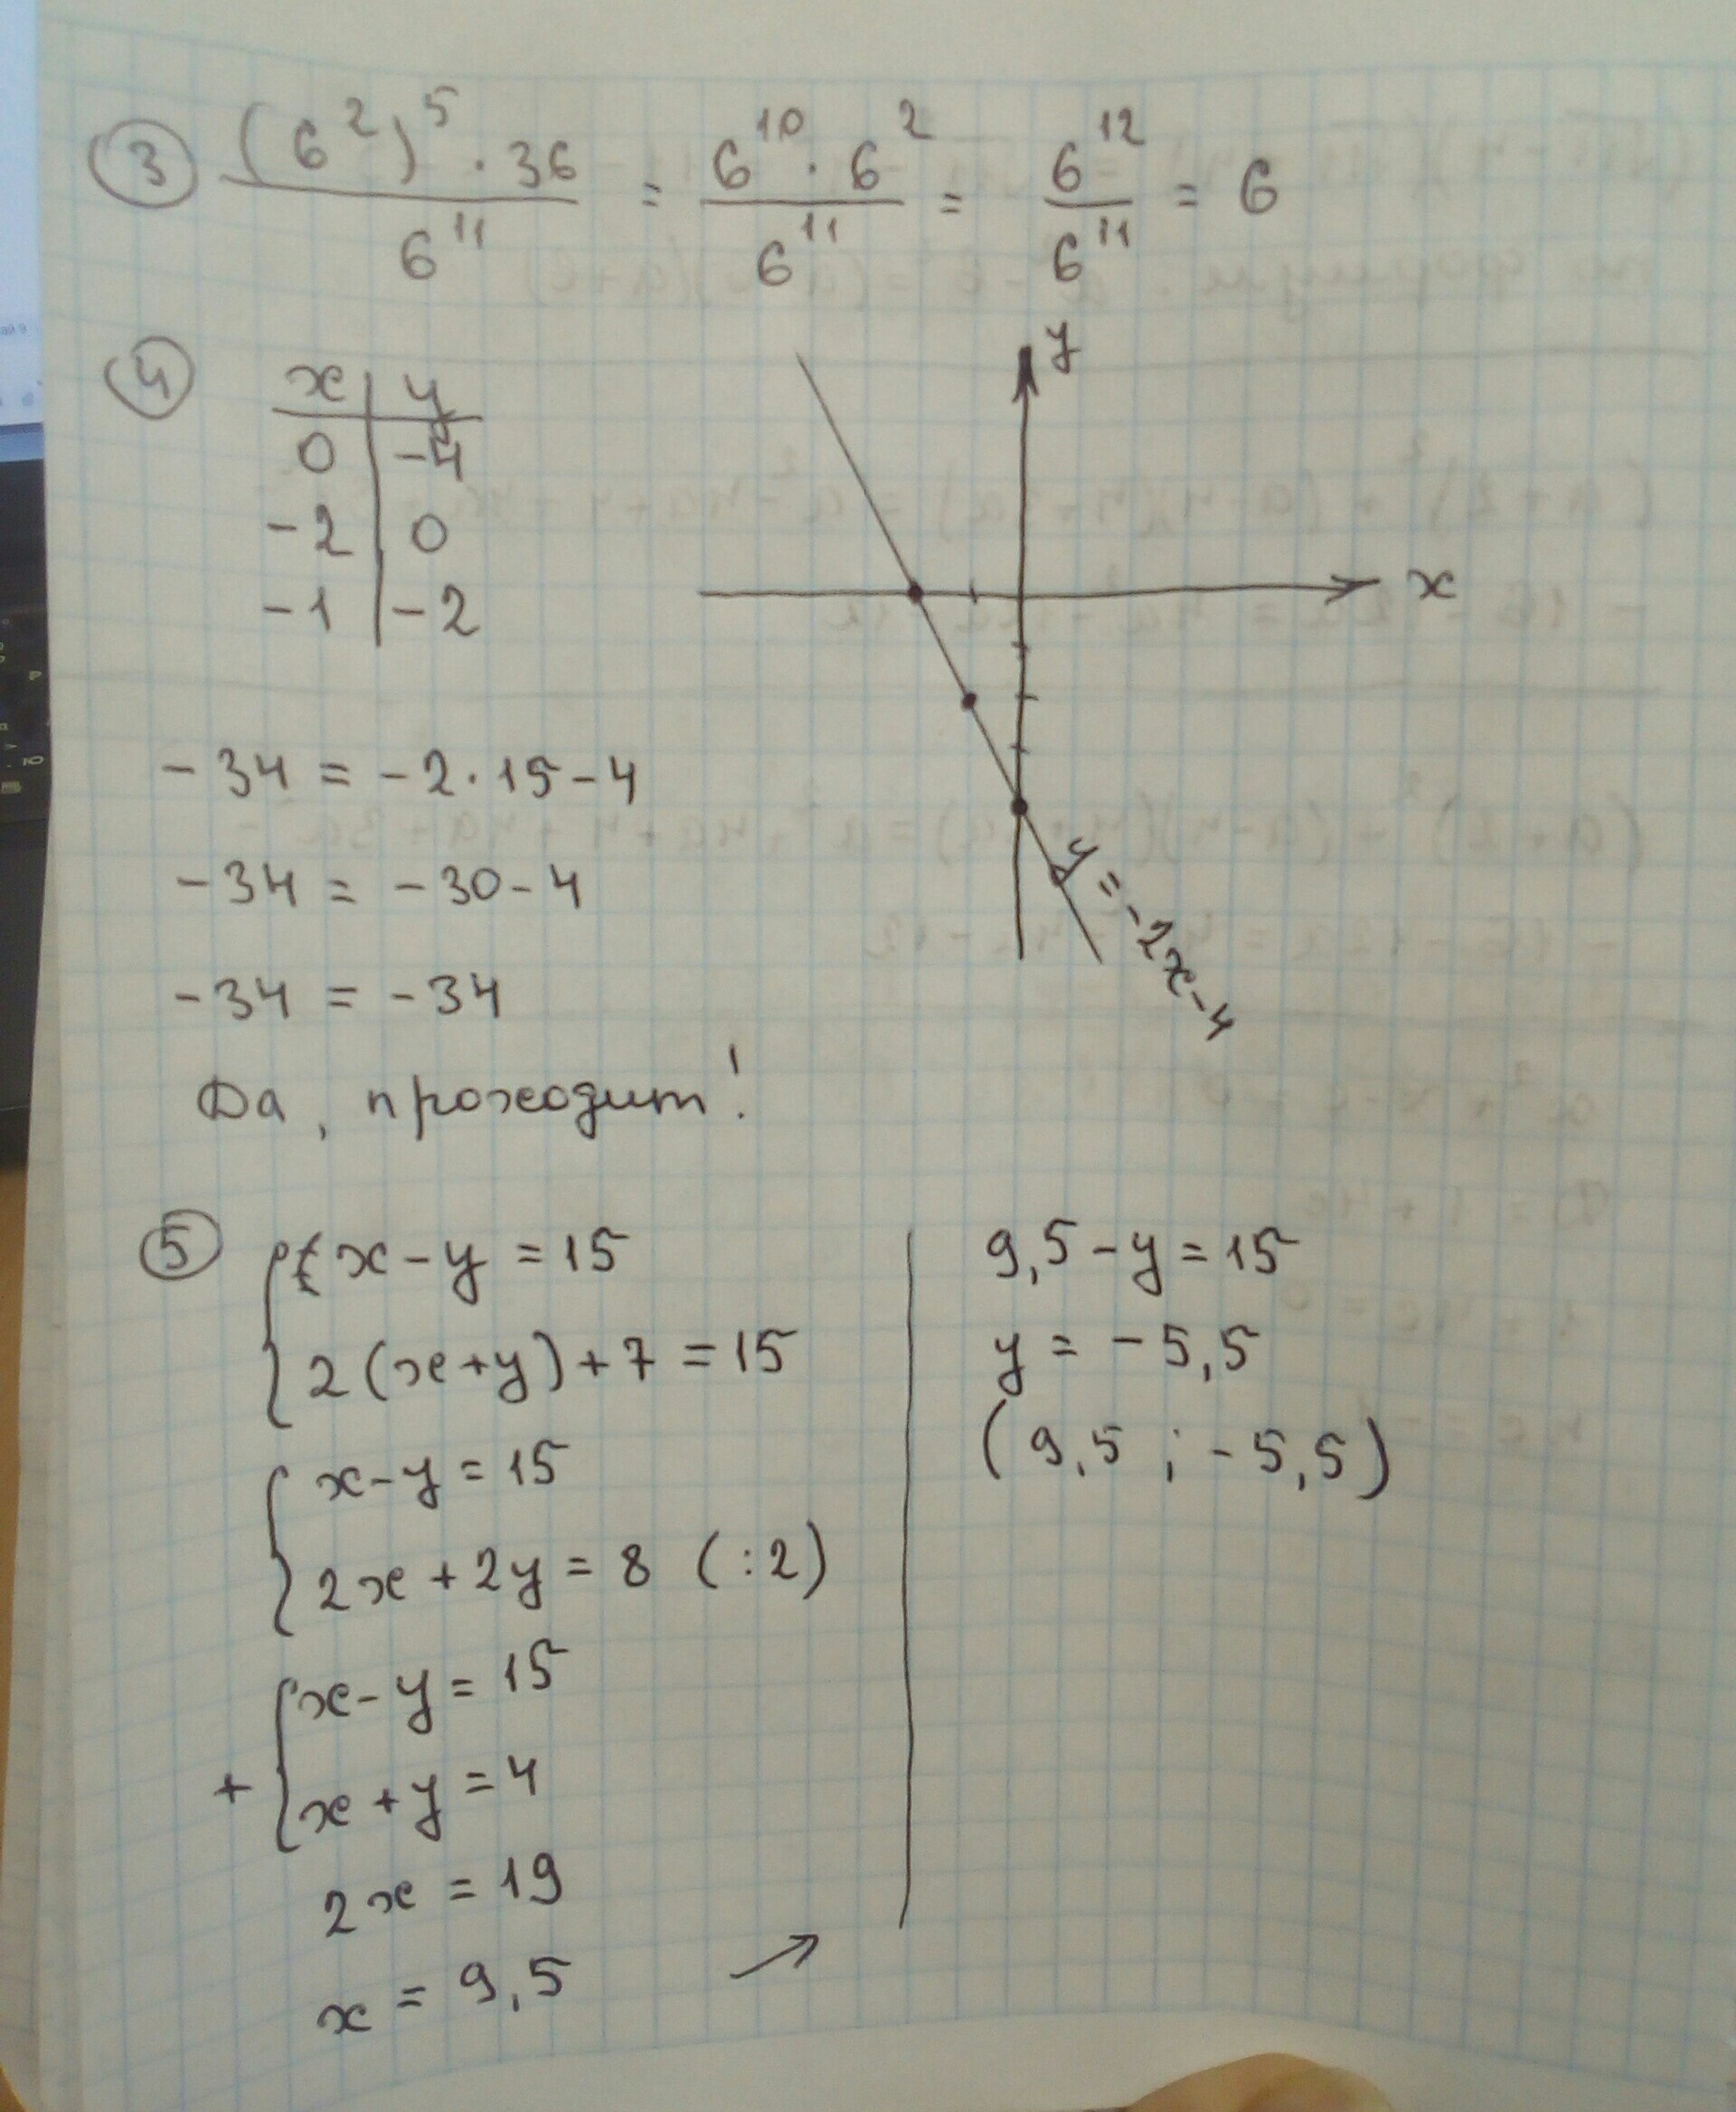 ③ (6²)⁵ · 36 / 6¹¹ = 6¹⁰ · 6² / 6¹¹ = 6¹² / 6¹¹ = 6
④ x | y
0 | -4
-2 | 0
-1 | -2
y
x
y = -2x - 4
-34 = -2 · 15 - 4
-34 = -30 - 4
-34 = -34
Да, проходит!
⑤ { x - y = 15
2(x+y) + 7 = 15
{ x - y = 15
2x + 2y = 8 (:2)
+ { x - y = 15
x + y = 4
2x = 19
x = 9,5
9,5 - y = 15
y = -5,5
(9,5 ; -5,5)